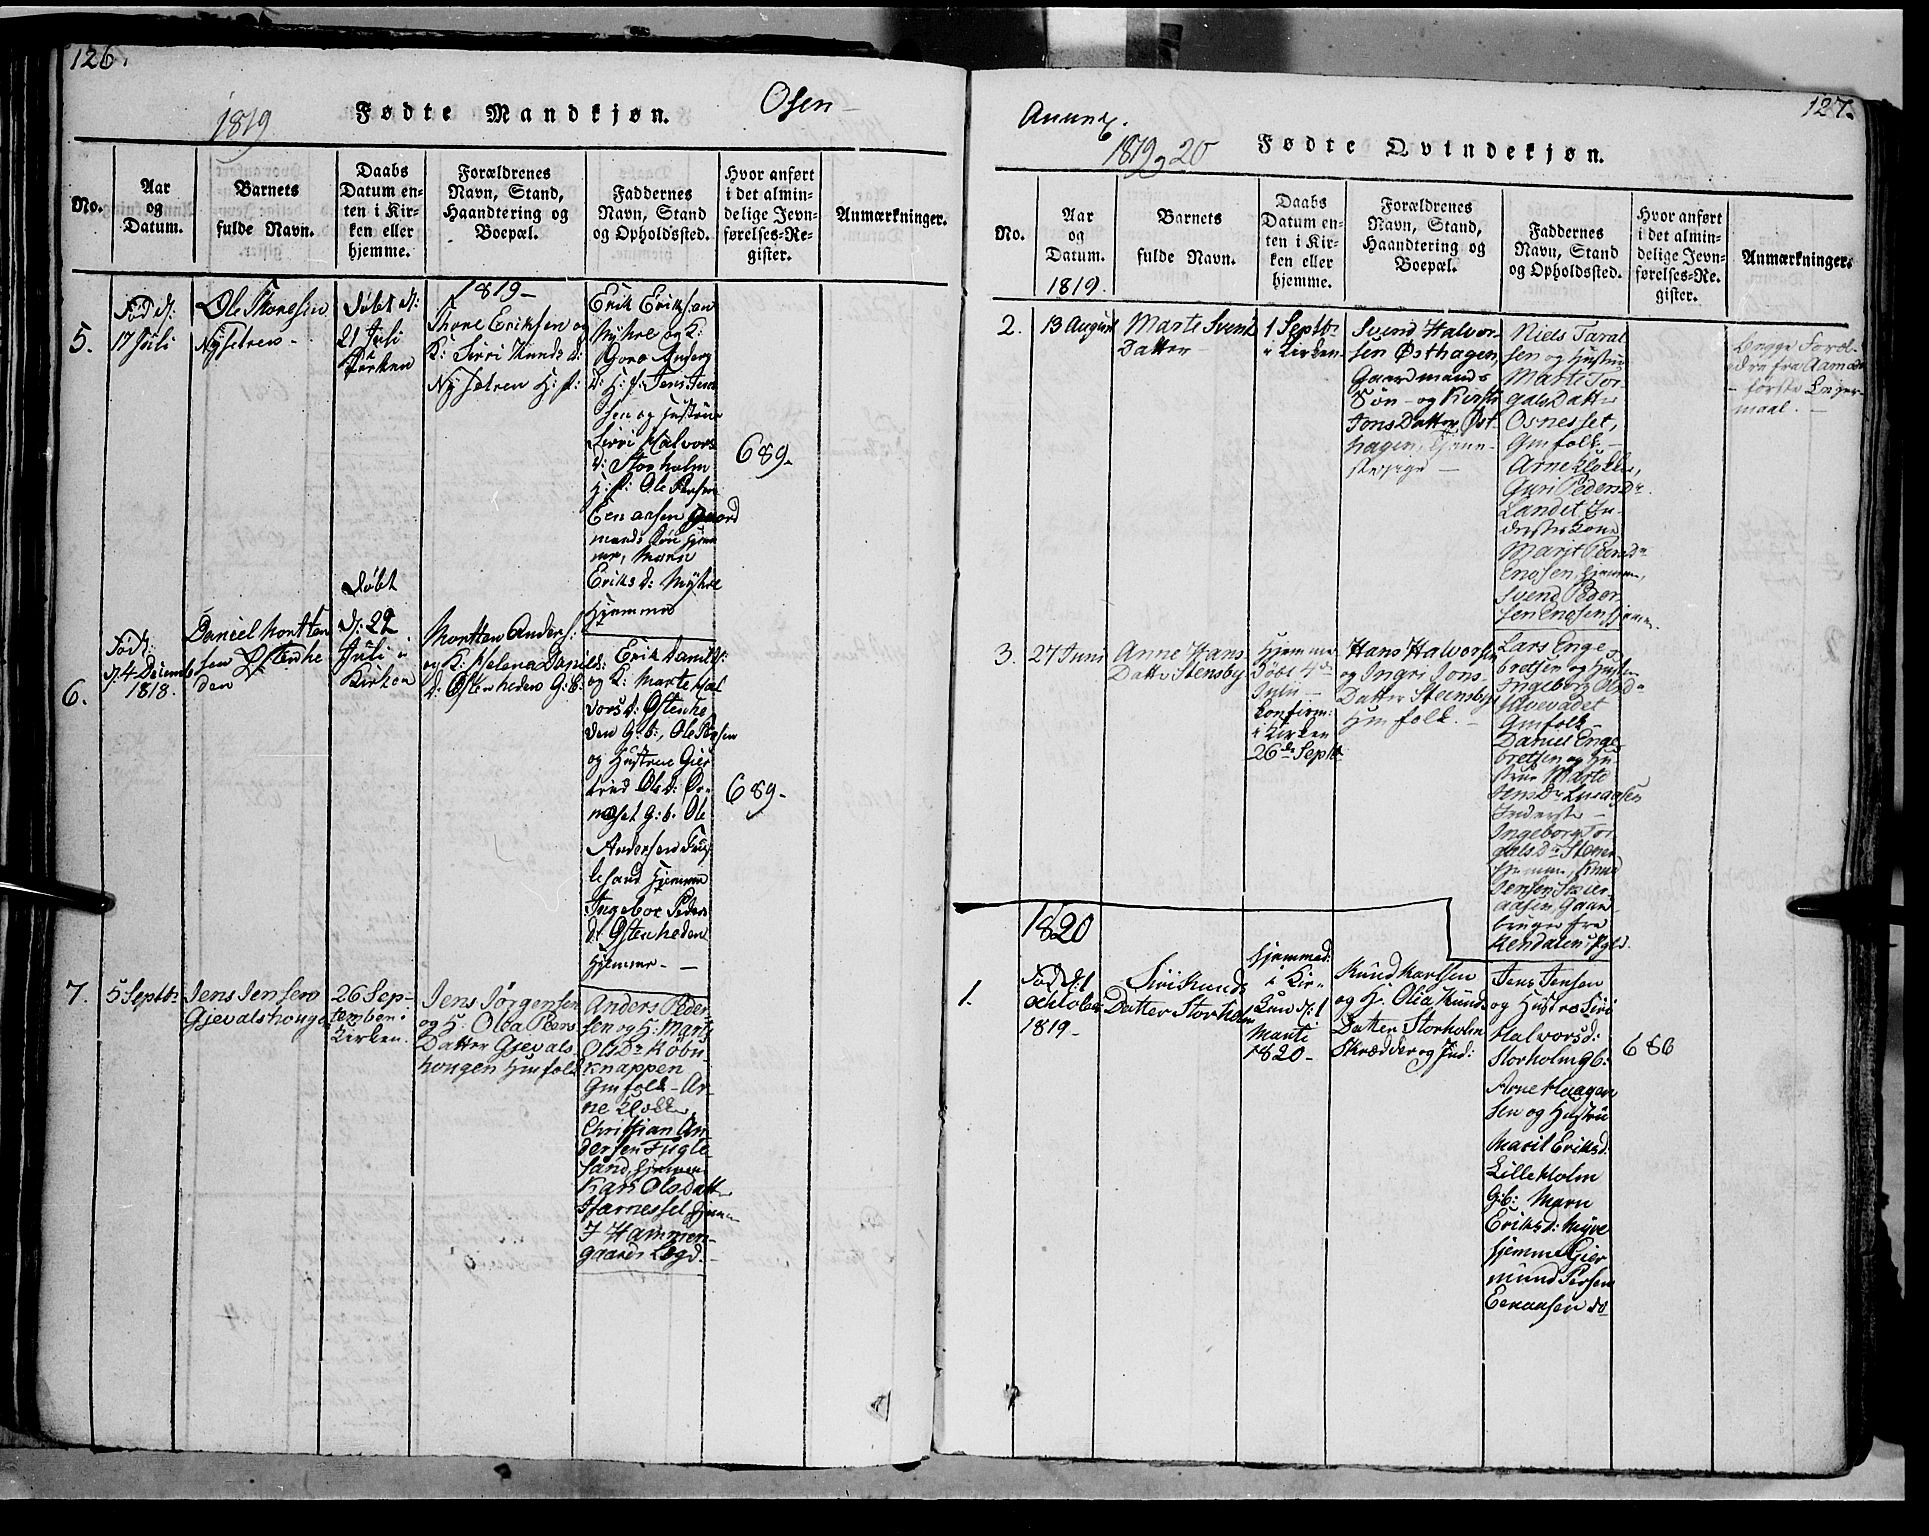 126.
1819
Fødte Mandkjøn.
Osen
No.
Aar
og
Datum.
Barnets
fulde Navn.
Daabs
Datum en-
ten i Kir-
ken eller
hjemme.
Forældrenes
Navn, Stand,
Haandtering og
Boepæl.
Faddernes
Navn, Stand
og Opholdssted.
Hvor anført
i det almin-
delige Jevn-
førelses-Re-
gister.
Anmærkninger.
5.
Fød d:
17 Juli
Ole Thoresen
Nysetren
Døbt d:
21 Juli
Kirken
1819
Thore Eriksen og
K: Sirri Knuds d:
Nysetren H: f:
Erik Eriksen
Myhre og K:
Goro
d: H: f: Jens Jen
sen og Hustrue
Sirri Halvors
d: Storholm
H: f: Ole Persen
Eenaasen Gaard
mands Søn hjem
me, Maren
Eriks d: Myhre
Hjemme
689-
6.
Fød
d: 4 Decemb
1818.
Daniel Mortten
sen Østenhe
den
Døbt
d: 22
Juli i
Kirken
Mortten Anders:
og K: Helena Daniels
d: Østenheden G:b:
Erik Daniels:
og K: Marte Hal
vors d: Østenhe
den G: b:, Ole Persen
og Hustrue Gier
trud Ols d: Os-
næset g: b. Ole
Andersen Fug
lesand Hjemme
Ingebor Peders
d: Østenheden
Hjemme.
689-
7.
5 Septbr
Jens Jensen
Gjevalshougen
26 Sep-
tember i
Kirken.
Jens Jørgensen
og H: Olea Peers
Datter Gjevals
hougen Hmfolk
Anders Peder
sen og H: Marte
Ols Dr Købu
knappen
Gmfolk - Ar
ne Klokker
Christian An
dersen Fugle
sand, hjemme
Kari Olsdatter
Hammer
gaards Lægd.
127.
Annex.
1819 og 20
Fødte Qvindekjøn.
No.
Aar
og
Datum.
1819.
Barnets
fulde Navn.
Daabs
Datum en-
ten i Kir-
ken eller
hjemme.
Forældrenes
Navn, Stand,
Haandtering og
Boepæl.
Faddernes
Navn, Stand
og Opholdssted.
Hvor anført
i det almin-
delige Jevn-
førelses-Re-
gister.
Anmærkninger.
2.
13 August
Marte Svends
Datter
1 Septbr
i Kirken
Svend Halvor-
sen Østhagen,
Gaardmands
Søn - og Kersti
Jons Datter Øst
hagen, tjene-
stepige
Niels Taral
sen og Hustru
Marte Tor-
gals Datter
Osnesset,
Gmfolk
Arne Klokker,
Guri Peders Dr
Landet In-
dersterkone
Marit Peders Dr
Enosen hjemme,
Svend Peder
sen Enosen hjemme.
begge Foræl-
dre fra Aamodt
første Leier-
maal.
3.
27 Juni
Anne Hans
Datter Stensby
Hjemme
døbt 4de
Julii
Confirm:
i Kirken
26de Septbr
Hans Halvorsen
og Ingri Jons
Datter Steensby
Hmfolk.
Lars Enge
bretsen og Hustru
Ingeborg Ols Dr
Gmfolk
Daniel Enge
bretsen og Hu
strue Marte
Jens Dr
Inderste
Ingeborg Tor
gals Dr Stener
hjemme, Knud
Jensen Skier
aasen, Gaard
bruger fra
Rendalens Pgld.
1820
1.
Fød d: 1
October
1819
Siri Knuds
Datter Storholm
hjemmed:
i Kir-
ken d: 1
Marti
1820
Knud Karlsen
og H: Olia Knuds
Datter Storholm
Skrædder og Ind:
Jens Jensen
og Hustro Siri
Halvorsd:
Storholm gb:
Arne Haagen
sen og Hustru
Marit Eriksd:
Lilleholm
G:b: Marn
Eriksd: Myre
hjemme Gier
mund Persen
Eenaasen do
686